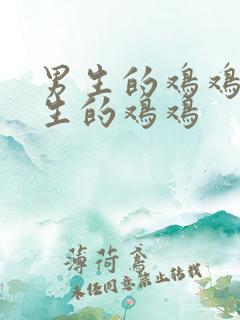 男生的鸡鸡
生的鸡鸡
薄荷鸢
未经同意禁止转载